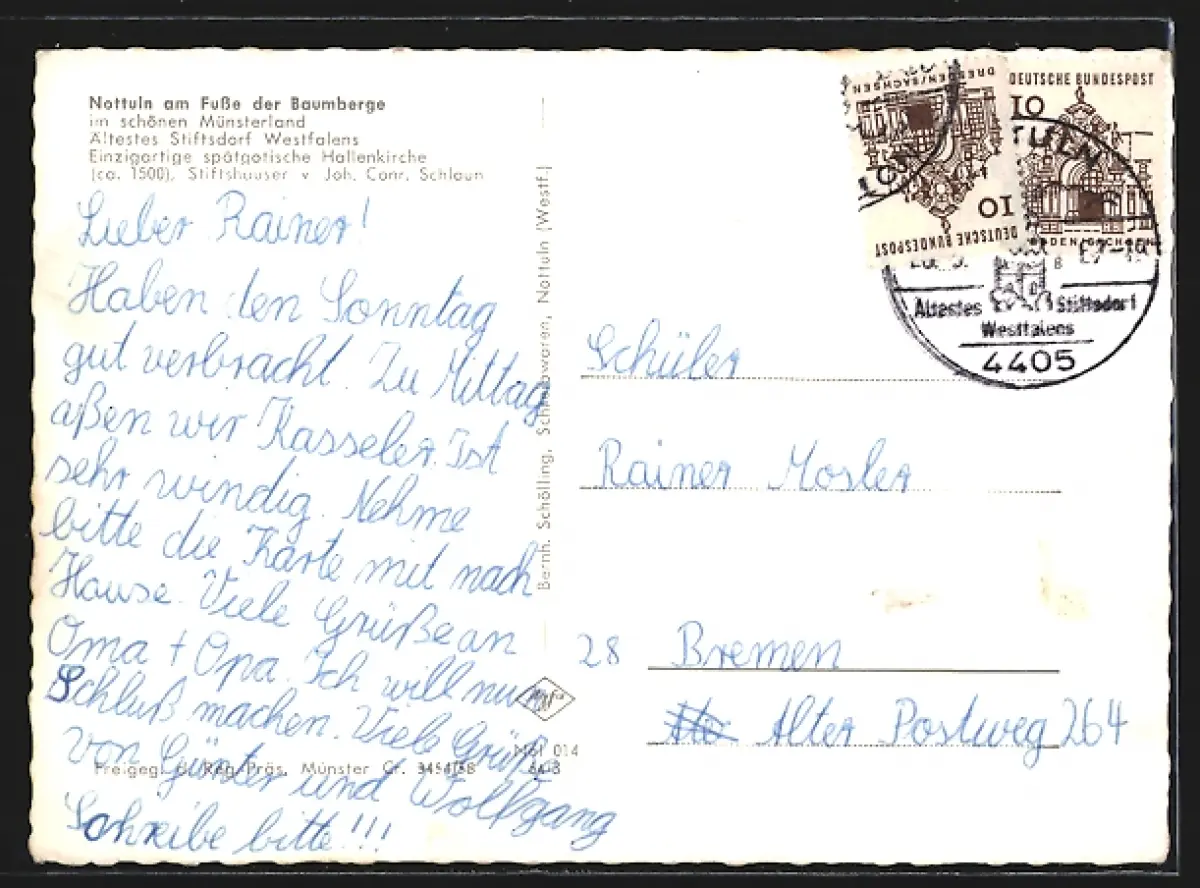 Nottuln am Fuße der Baumberge
im schönen Münsterland
Ältestes Stiftsdorf Westfalens
Einzigartige spätgotische Hallenkirche
(ca. 1500), Stiftshäuser v Joh. Conr. Schlaun
Lieber Rainer!
Haben den Sonntag
gut verbracht. Zu Mittag
aßen wir Kasseler. Ist
sehr windig. Nehme
bitte die Karte mit nach
Hause. Viele Grüße an
Oma + Opa. Ich will nun
Schluß machen. Viele Grüße
von Günter und Wolfgang
Schreibe bitte!!!
Freigeg. d. Reg.-Präs. Münster Cr. 3454/58
Bernh. Schölling, Schreibwaren, Nottuln (Westf.)
DRESDEN/SACHSEN
10
DEUTSCHE BUNDESPOST
DEUTSCHE BUNDESPOST
10
Ältestes Stiftsdorf
Westfalens
4405
Schüler
Rainer Mosler
28 Bremen
Alter Postweg 264